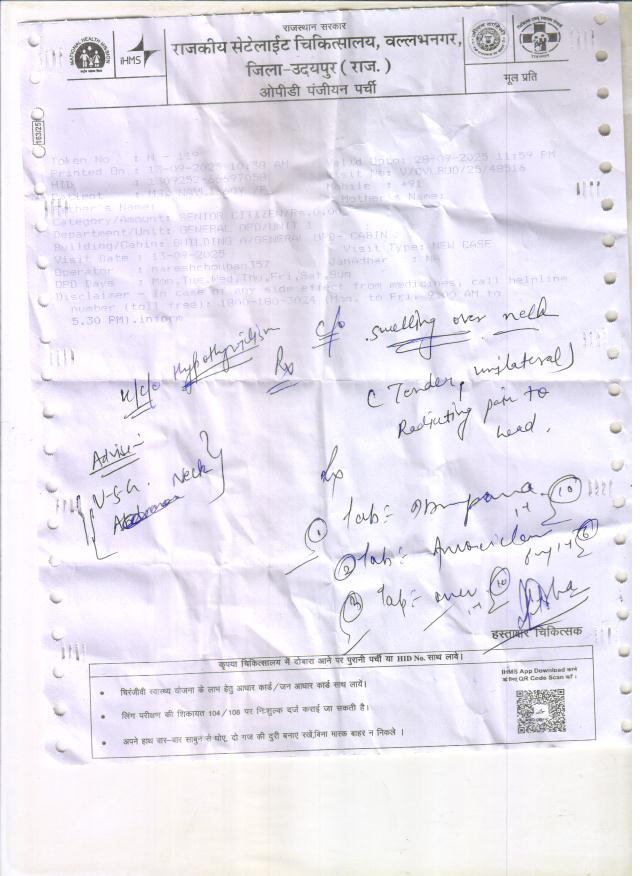 राजस्थान सरकार
राजकीय सेटेलाईट चिकित्सालय, वल्लभनगर,
जिला-उदयपुर ( राज. )
ओपीडी पंजीयन पर्ची
NATIONAL HEALTH MISSION
iHMS
मूल प्रति
163/25
Token No : N - 119
Printed On : 13-09-2025 10:38 AM Valid Upto: 28-09-2025 11:59 PM
HID Visit No: V/OVLBUD/25/48516
Mobile : +91
Mother's Name: Mother's Name:
Category/Amount: SENIOR CITIZEN/Rs.0.00
Department/Unit: GENERAL OPD/UNIT 1
Building/Cabin: BUILDING A/GENERAL OPD- CABIN
Visit Date : 13-09-2025 Visit Type: NEW CASE
Operator : nareshchouhan357 JanAdhar : NA
OPD Days : Mon,Tue,Wed,Thu,Fri,Sat,Sun
Disclaimer - In case of any side effect from medicines, call helpline
number (toll free): 1800-180-3024 (Mon. to Fri. 9.00 AM to
5.30 PM).inform
C/o swelling over neck
K/C/o Hypothyroidism
Rx
( Tender, unilateral )
Radiating pain to
head.
Advise :-
U.S.G. Neck
Rx
1 Tab 1+ 10
2 Tab 1+ 6
3 Tab 10
हस्ताक्षर चिकित्सक
कृपया चिकित्सालय में दोबारा आने पर पुरानी पर्ची या HID No. साथ लावें।
• चिरंजीवी स्वास्थ्य योजना के लाभ हेतु आधार कार्ड/जन आधार कार्ड साथ लायें।
• लिंग परीक्षण की शिकायत 104/108 पर निःशुल्क दर्ज कराई जा सकती है।
• अपने हाथ बार-बार साबुन से धोए, दो गज की दुरी बनाए रखें,बिना मास्क बाहर न निकले ।
IHMS App Download करने
के लिए QR Code Scan करें ।